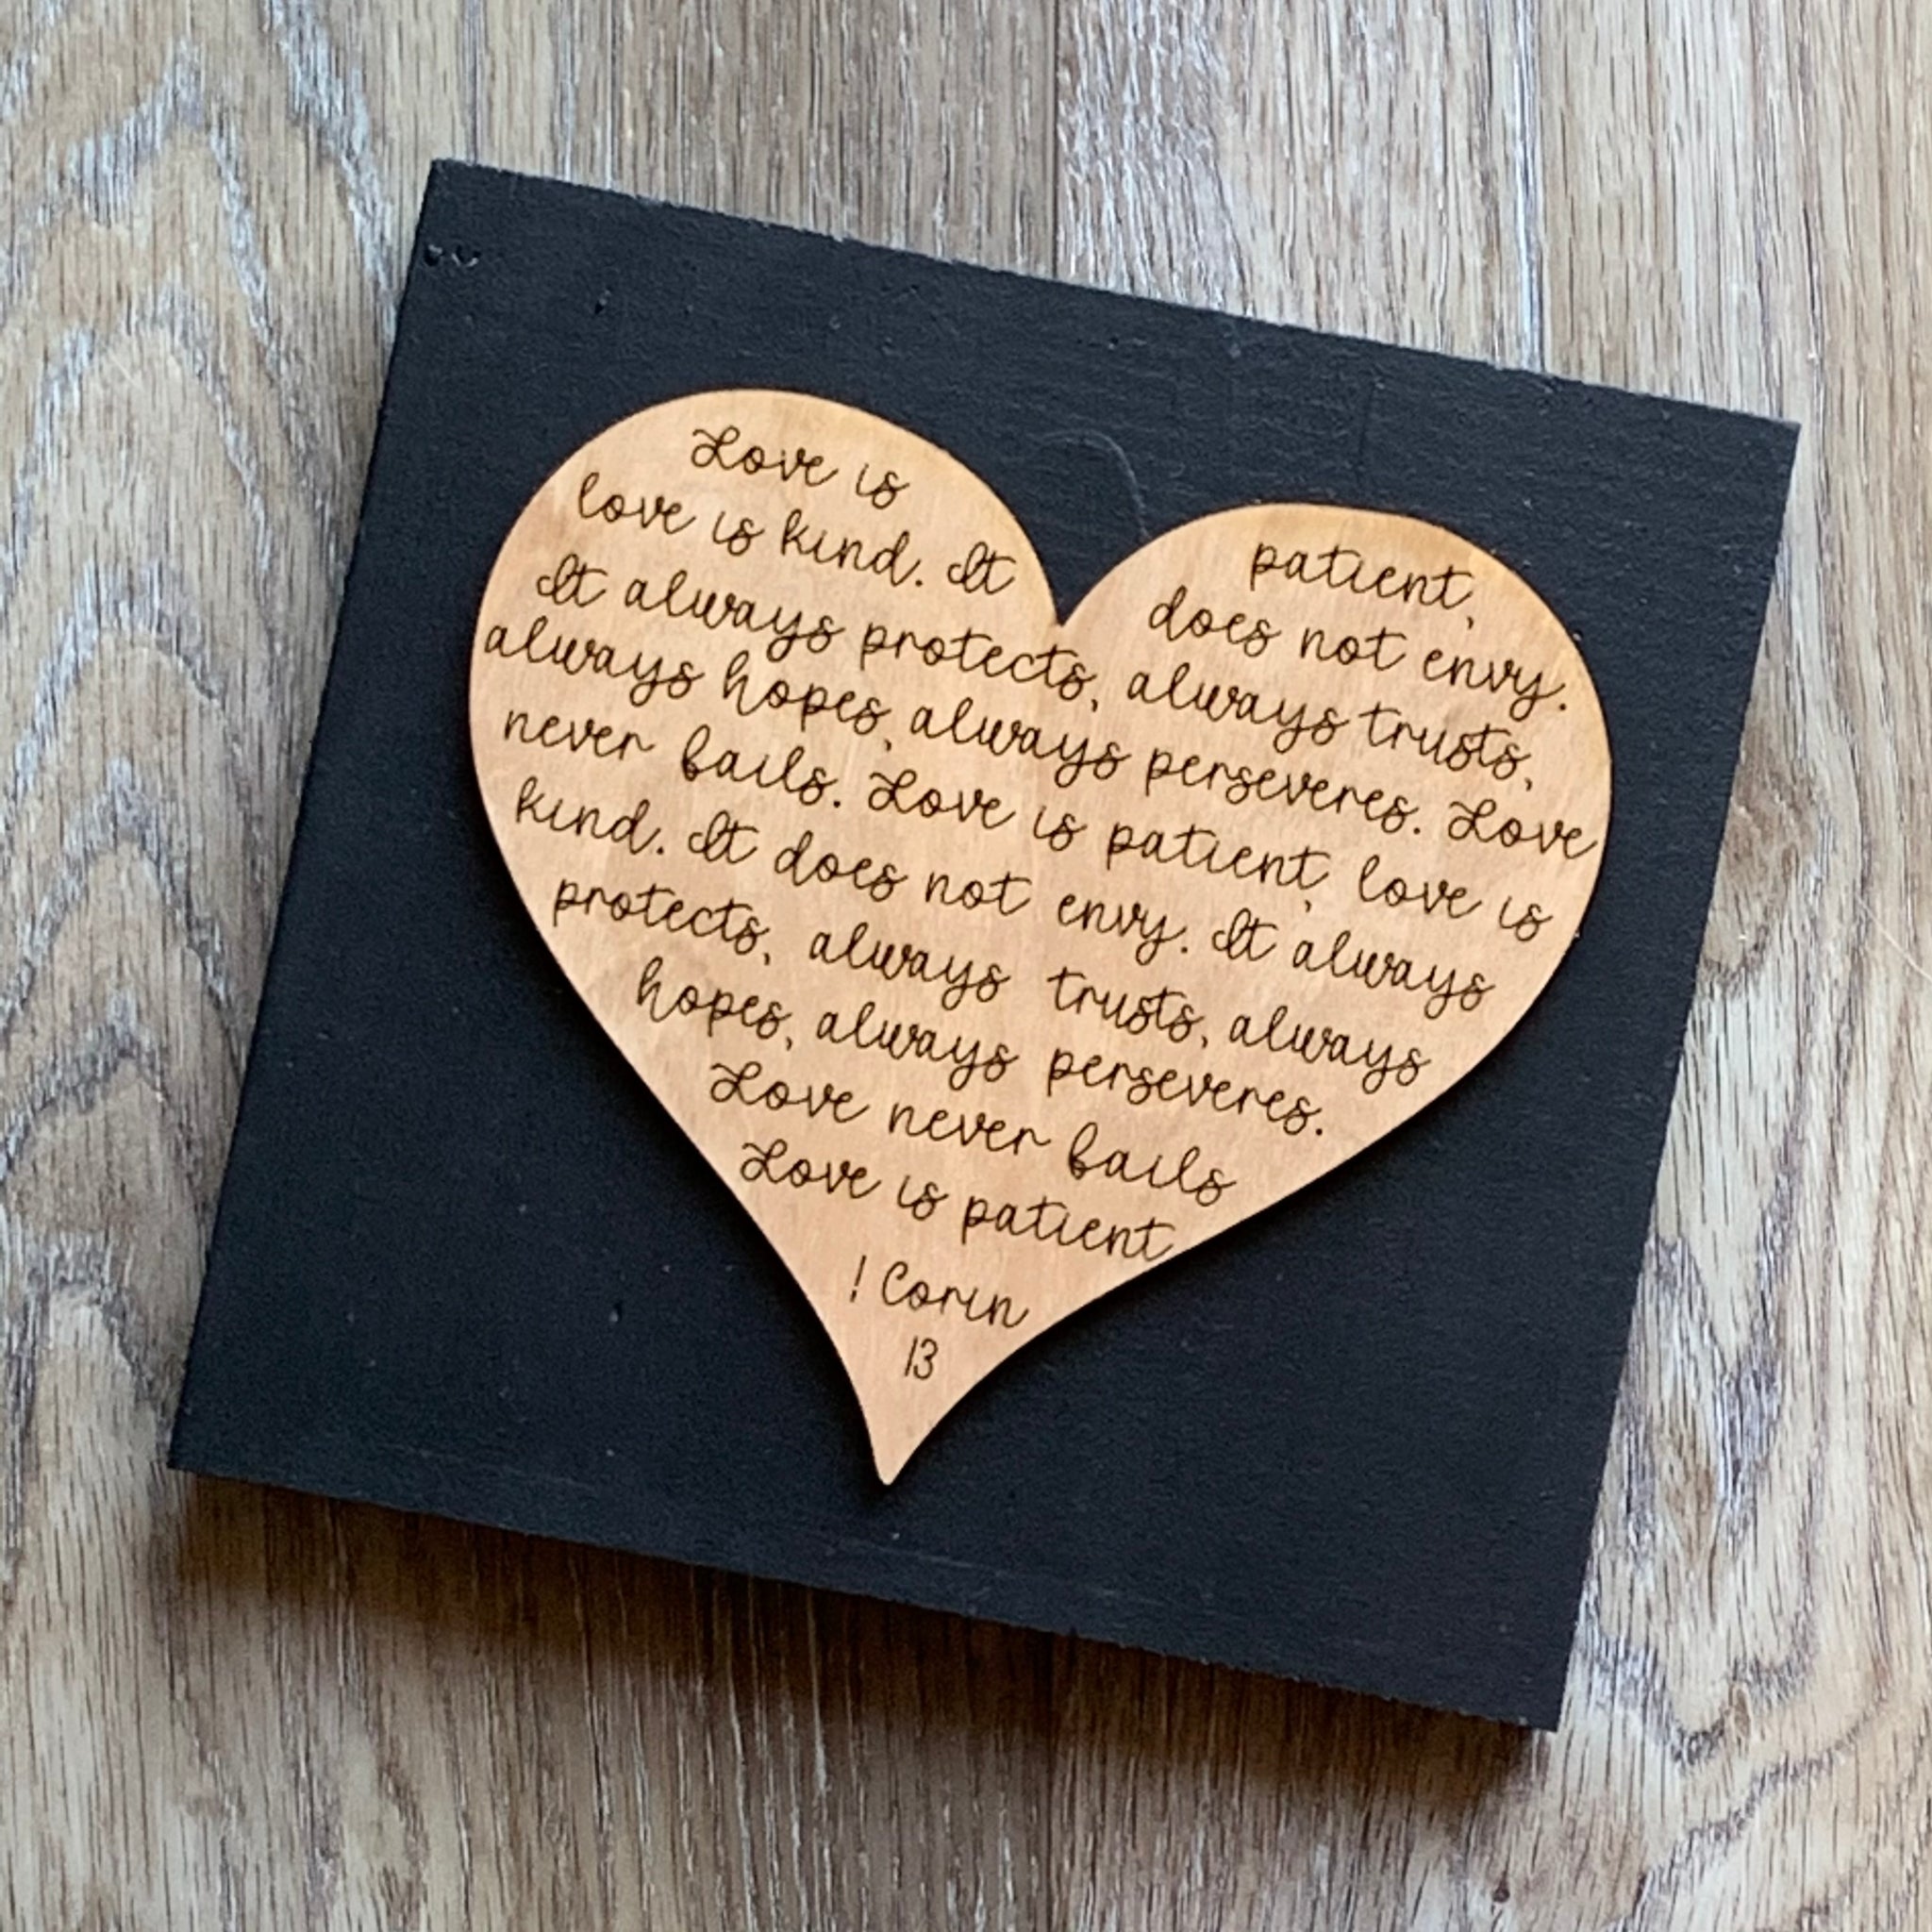 Love is patient,
love is kind. It does not envy.
It always protects, always trusts,
always hopes, always perseveres. Love
never fails. Love is patient, love is
kind. It does not envy. It always
protects, always trusts, always
hopes, always perseveres.
Love never fails
Love is patient
! Corin
13